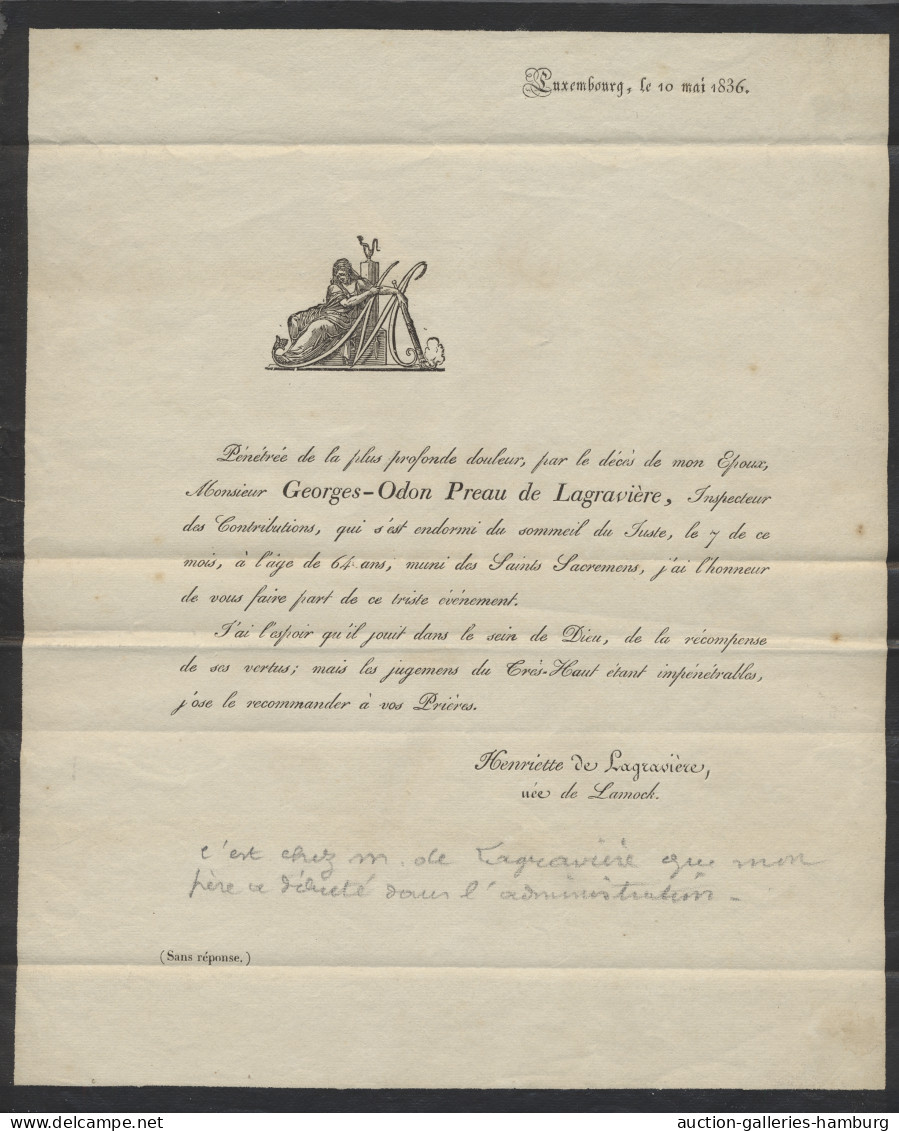 Luxembourg, le 10 mai 1836.
Pénétrée de la plus profonde douleur, par le décès de mon Epoux,
Monsieur Georges-Odon Preau de Lagravière, Inspecteur
des Contributions, qui s'est endormi du sommeil du Juste, le 7 de ce
mois, à l'âge de 64 ans, muni des Saints Sacremens, j'ai l'honneur
de vous faire part de ce triste événement.
J'ai l'espoir qu'il jouit dans le sein de Dieu, de la récompense
de ses vertus; mais les jugemens du Très-Haut étant impénétrables,
j'ose le recommander à vos Prières.
Henriette de Lagravière,
née de Lamock.
c'est chez m. de Lagravière que mon
père a débuté dans l'administration -
(Sans réponse.)
auction-galleries-hamburg